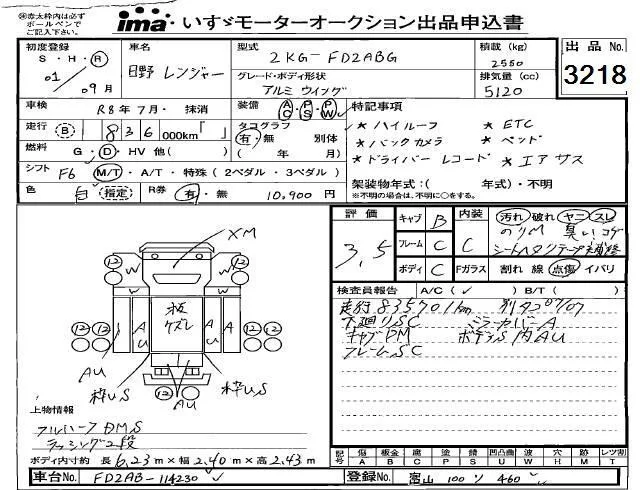 ※赤太枠内は必ず
ボールペンで
ご記入下さい。
ima いすゞモーターオークション出品申込書
初度登録
S・H・R
01/09月
車名
日野 レンジャー
型式
2KG-FD2ABG
グレード・ボディ形状
アルミ ウイング
積載(kg)
2550
排気量(cc)
5120
出品No.
3218
車検 R8年7月・抹消
装備 AC・PS・PW
特記事項
走行 B 836 000km「 」
タコグラフ
有・無 別体
( 年 月)
燃料 G・D・HV 他( )
シフト F6 M/T・A/T・特殊(2ペダル・3ペダル)
色 白 指定 R券 有・無 10,900円
*ハイルーフ *ETC
*バックカメラ *ベッド
*ドライバー レコード *エアサス
架装物年式:( 年式)・不明
※不明の場合は、不明に○をする。
評価 3.5
キャブ B 内装 C
フレーム C
ボディ C Fガラス
汚れ 破れ ヤニ スレ
のりM 臭い コゲ
割れ 線 点傷 イバリ
検査員報告 A/C(✓) B/T( )
走行835701km 別タコ07/07
下廻りSC ミラーカバーA
キャブPM ボデラS内AU
フレームSC
XM
板
ケズレ
12 12
W W
W W
A U
A U
12 12
AU
枠US 枠US
12 12
AU
上物情報
フルハーフDMS
ラッシング2段
ボディ内寸約 長6.23m×幅2.40m×高2.43m
記号 傷 板金 腐 塗 錆 凹凸曲 波 穴 跡 レツ割
A B C P S U W H M T
車台No. FD2AB-114230
登録No. 富山 100 ソ 460